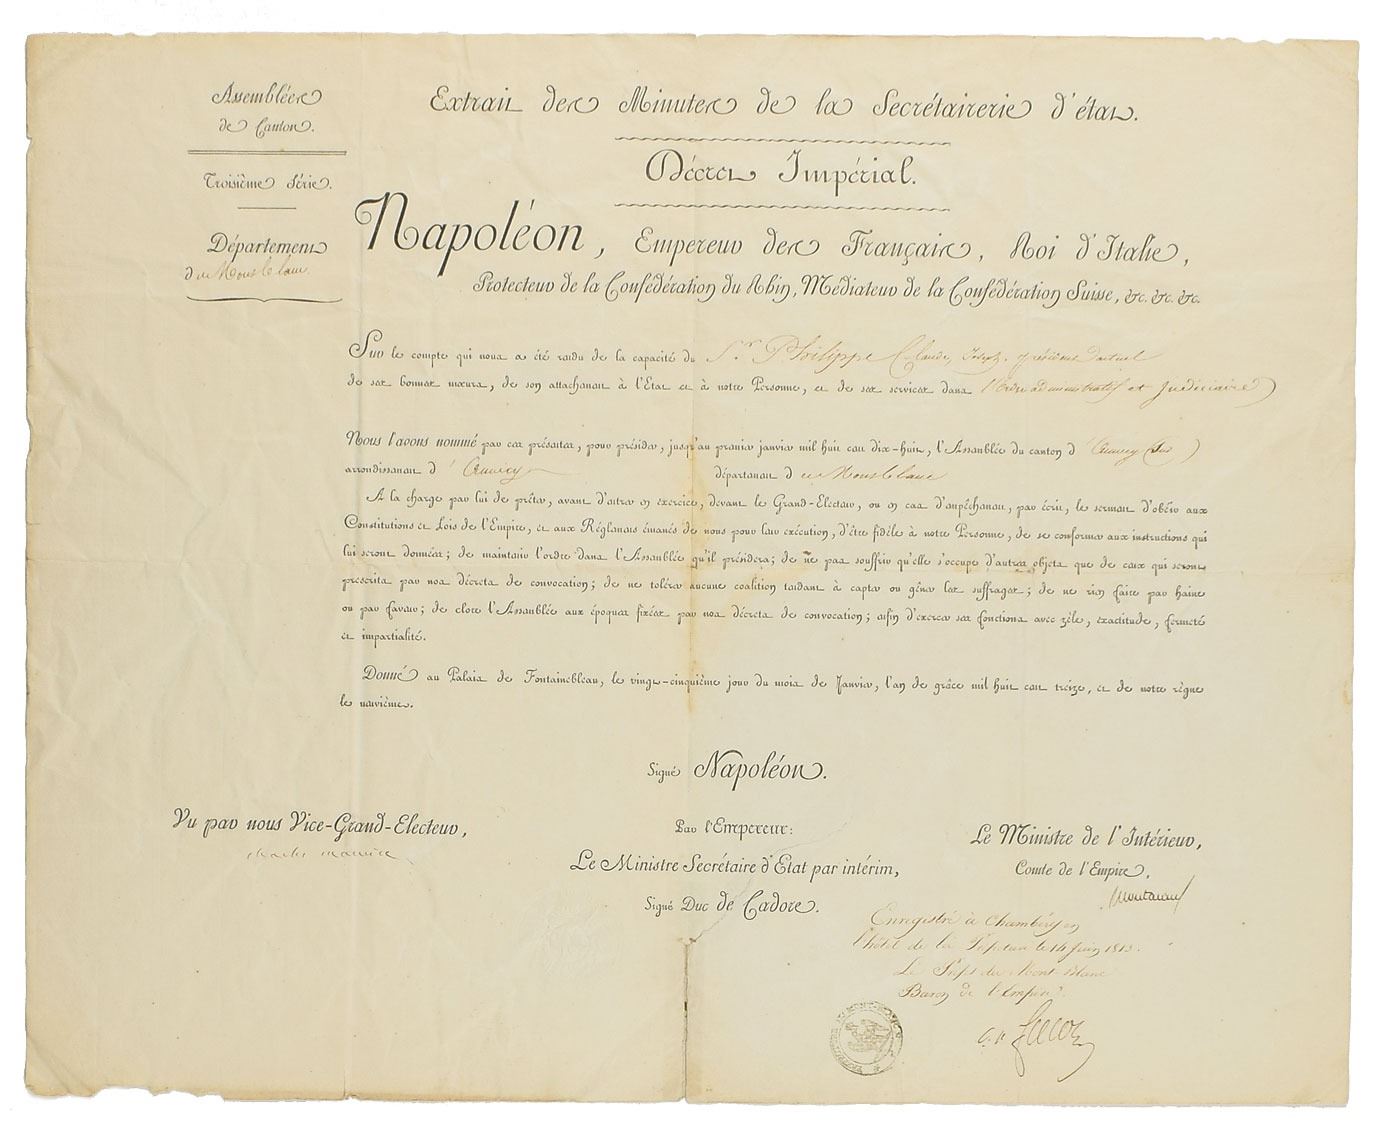 Assemblées
de Canton.
Troisième Série.
Département
du Mont blanc.
Extrait des Minutes de la Secrétairerie d'état.
Décret Impérial.
Napoléon, Empereur des Français, Roi d'Italie,
Protecteur de la Confédération du Rhin, Médiateur de la Confédération Suisse, &c. &c. &c.
Sur le compte qui nous a été rendu de la capacité du Sr. Philippe Claude, Joseph. président actuel
de ses bonnes mœurs, de son attachement à l'Etat et à notre Personne, et de ses services dans l'Ordre administratif et Judiciaire
Nous l'avons nommé par ces présentes, pour présider, jusqu'au premier janvier mil huit cent dix-huit, l'Assemblée du canton d'Annecy (Sud)
arrondissement d'Annecy département du Mont blanc
A la charge par lui de prêter, avant d'entrer en exercice, devant le Grand-Electeur, ou en cas d'empêchement, par écrit, le serment d'obéir aux
Constitutions et Lois de l'Empire, et aux Réglemens émanés de nous pour leur exécution, d'être fidèle à notre Personne, de se conformer aux instructions qui
lui seront données; de maintenir l'ordre dans l'Assemblée qu'il présidera; de ne pas souffrir qu'elle s'occupe d'autres objets que de ceux qui seront
prescrits par nos décrets de convocation; de ne tolérer aucune coalition tendant à capter ou gêner les suffrages; de ne rien faire par haine
ou par faveur; de clore l'Assemblée aux époques fixées par nos décrets de convocation; enfin d'exercer ses fonctions avec zèle, exactitude, fermeté
et impartialité.
Donné au Palais de Fontainebleau, le vingt-cinquième jour du mois de Janvier, l'an de grâce mil huit cent treize, et de notre règne
le neuvième.
Signé Napoléon.
Vu par nous Vice-Grand-Electeur,
charles maurice
Par l'Empereur:
Le Ministre Secrétaire d'Etat par intérim,
Signé Duc de Cadore.
Le Ministre de l'Intérieur,
Comte de l'Empire,
Montalivet
Enregistré à Chambéry en
l'hôtel de la Préfecture le 14 Juin 1813.
Le Préfet du Mont-Blanc
Baron de l'Empire